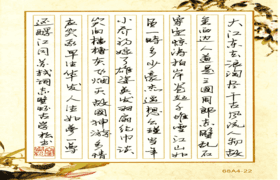 大江东去浪淘尽千古风流人物故
垒西边人道是三国周郎赤壁乱石
穿空惊涛拍岸卷起千堆雪江山如
画一时多少豪杰遥想公瑾当年
小乔初嫁了雄姿英发羽扇纶巾谈
笑间樯橹灰飞烟灭故国神游多情
应笑我早生华发人生如梦一尊
还酹江月苏轼词赤壁怀古
66A4-22